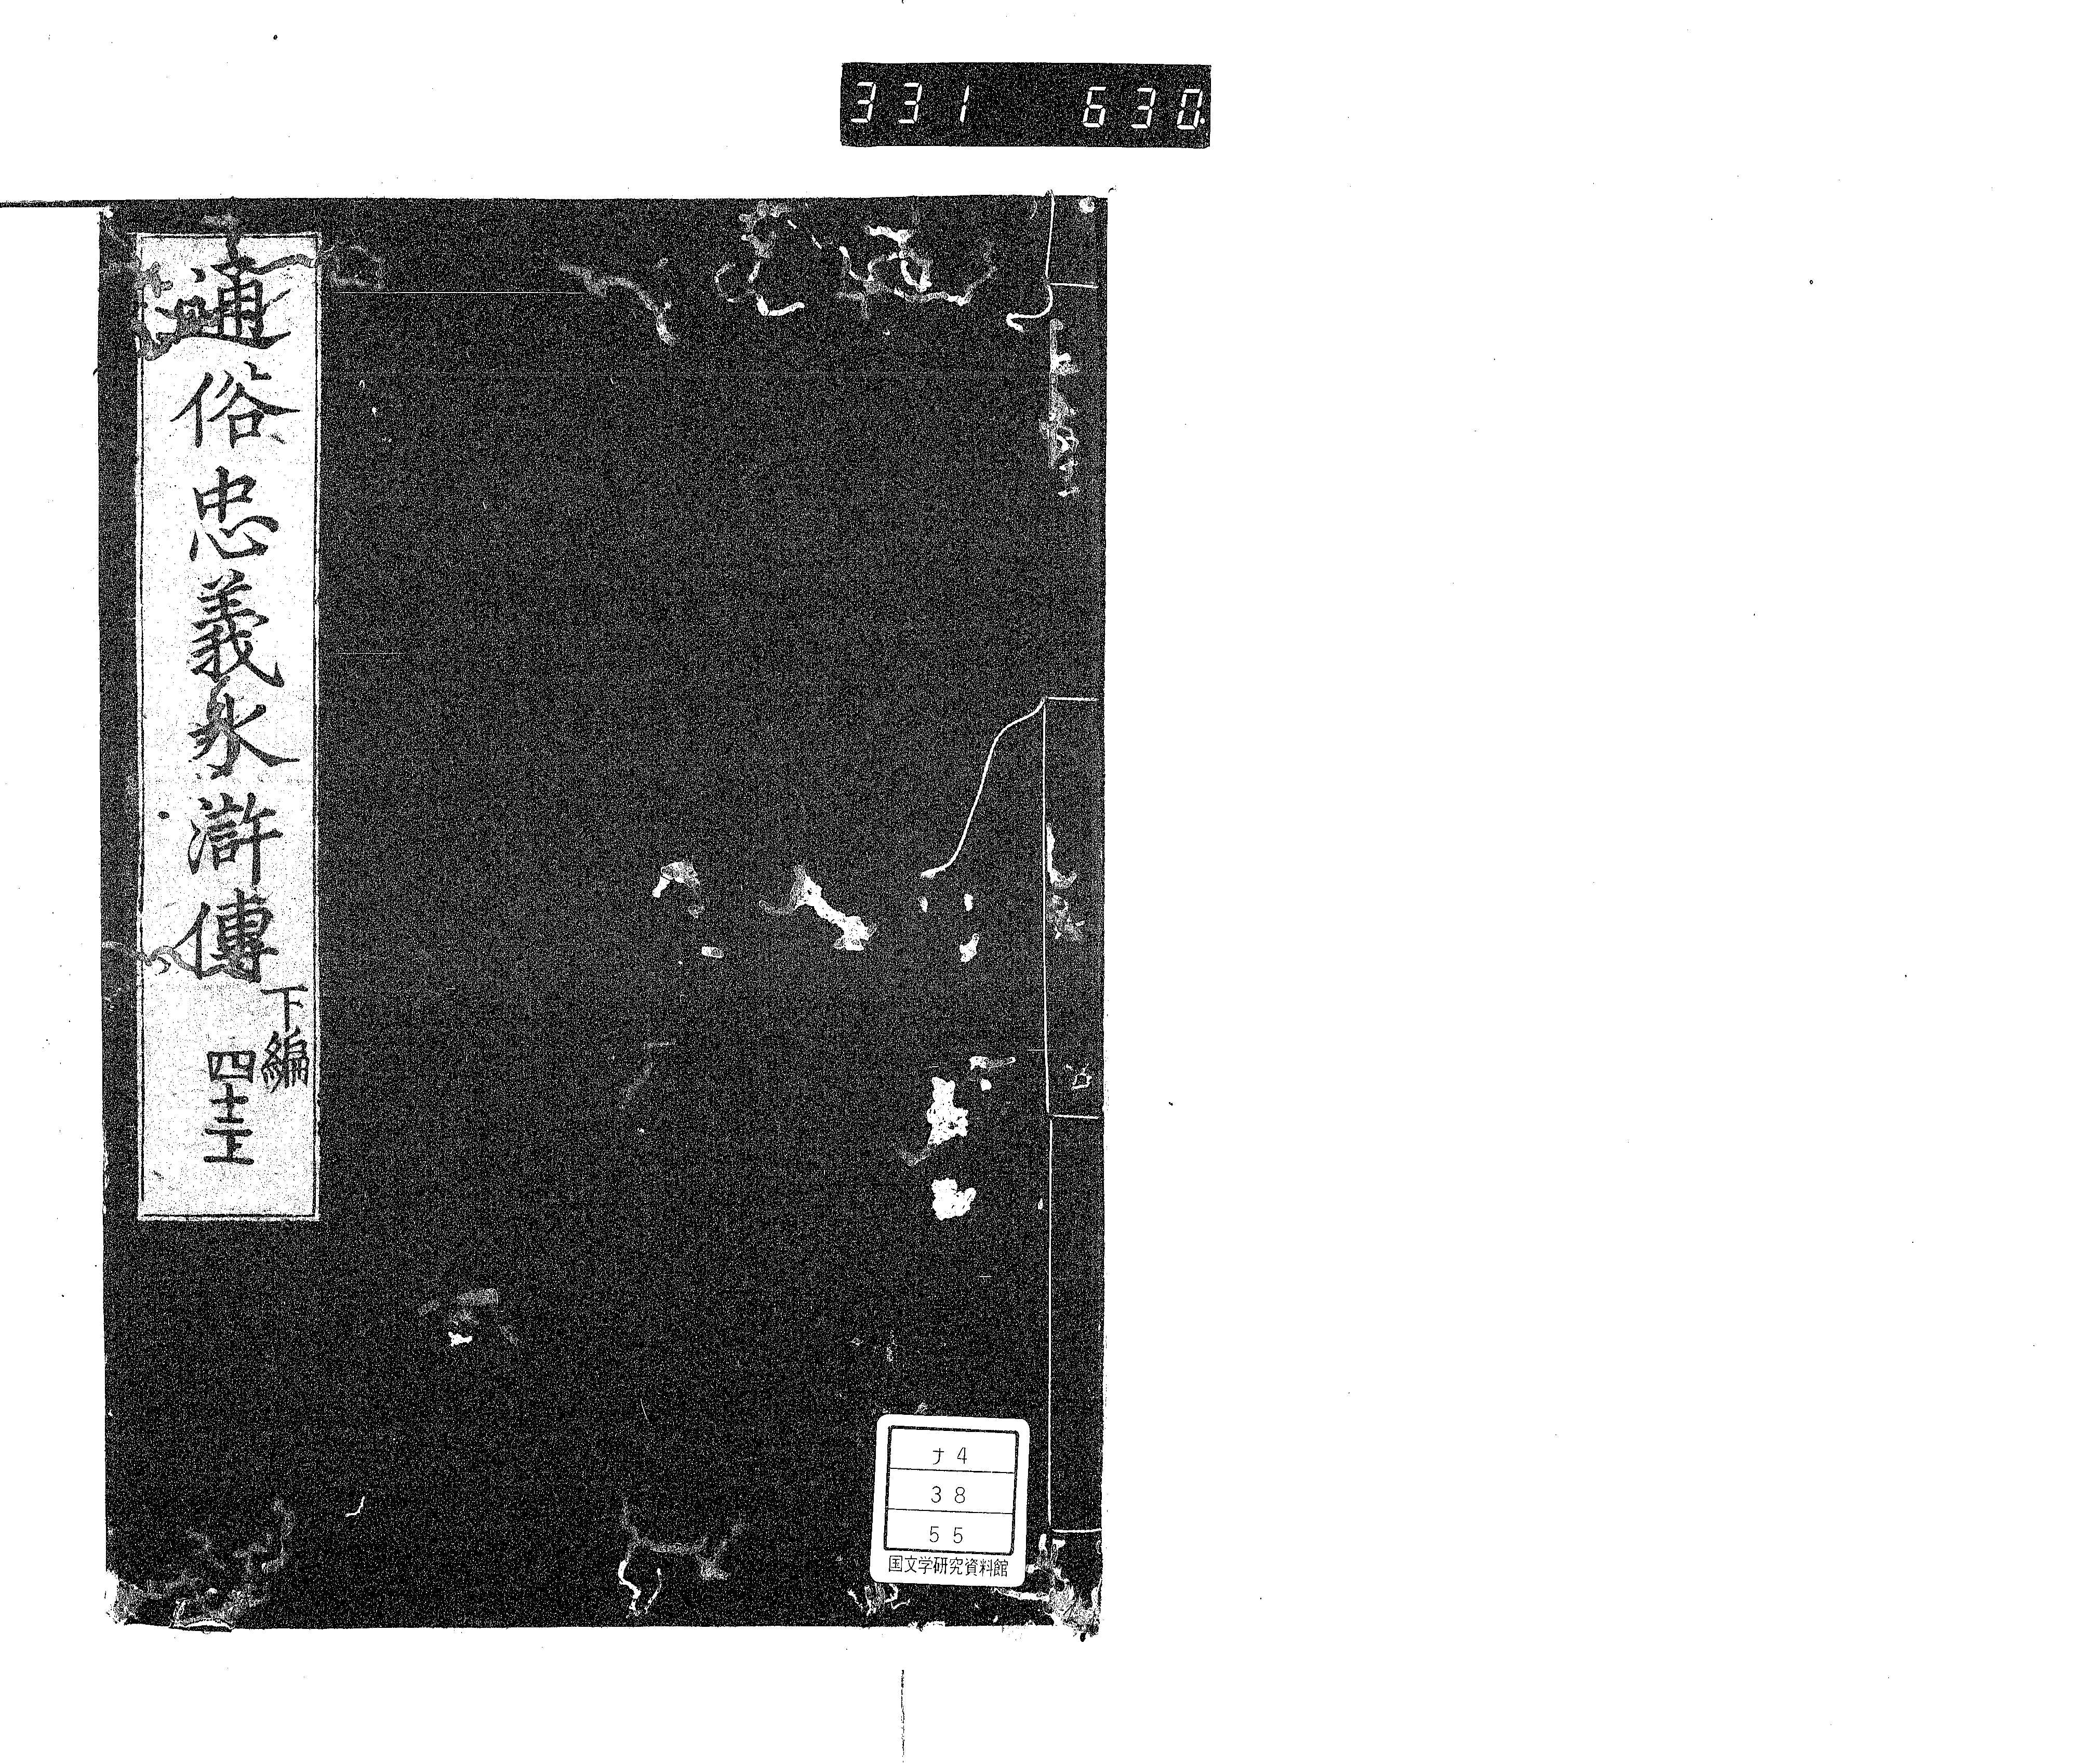 331 630.
通俗忠義水滸傳
下編
四十三下
ナ4
38
55
国文学研究資料館